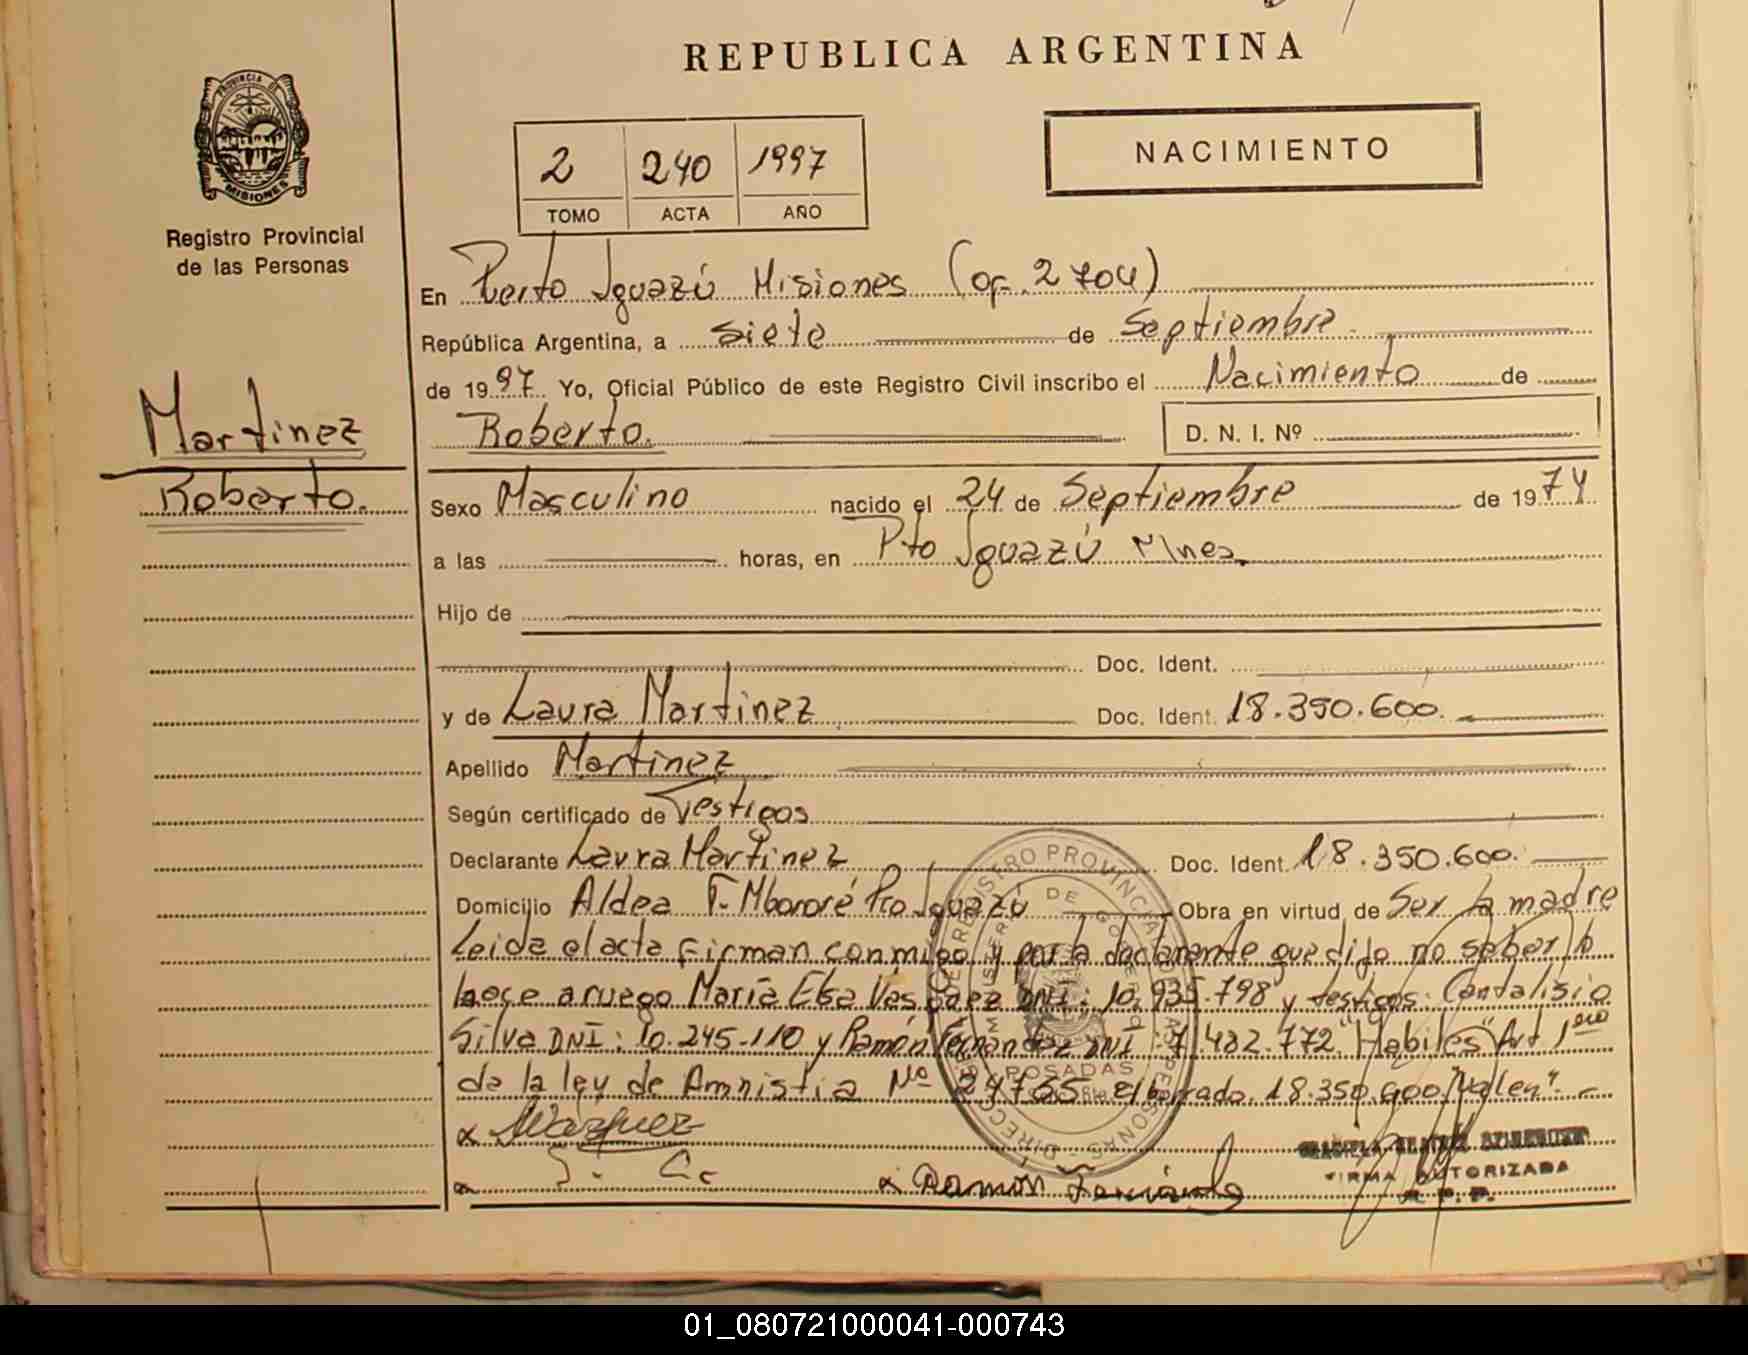 REPUBLICA ARGENTINA
PROVINCIA DE
MISIONES
Registro Provincial
de las Personas
2 240 1997
TOMO ACTA AÑO
NACIMIENTO
En Puerto Iguazú Misiones (of. 2704)
República Argentina, a siete de Septiembre
de 1997 Yo, Oficial Público de este Registro Civil inscribo el Nacimiento de
Roberto. D. N. I. Nº
Martinez
Roberto.
Sexo Masculino nacido el 24 de Septiembre de 1974
a las horas, en Pto Iguazú Mnes.
Hijo de
Doc. Ident.
y de Laura Martinez Doc. Ident. 18.350.600.
Apellido Martinez
Según certificado de Testigos
Declarante Laura Martinez Doc. Ident. 18.350.600.
Domicilio Aldea F. Mbororé Pto Iguazú Obra en virtud de Ser la madre
Leida el acta firman conmigo y por la declarante que dijo no saber lo
hace a ruego Maria Elsa Vasquez DNI: 10.935.798 y testigos: Candalisio
Silva DNI: 10.245.110 y Ramón Fernandez DNI: 7.482.772 "Habiles" Art 1ero
de la ley de Amnistia Nº 24755 el borrado 18.350.600 "Valen".
x MVazquez
S. C.
x Ramón
FIRMA AUTORIZADA
R. P. P.
POSADAS
01_080721000041-000743